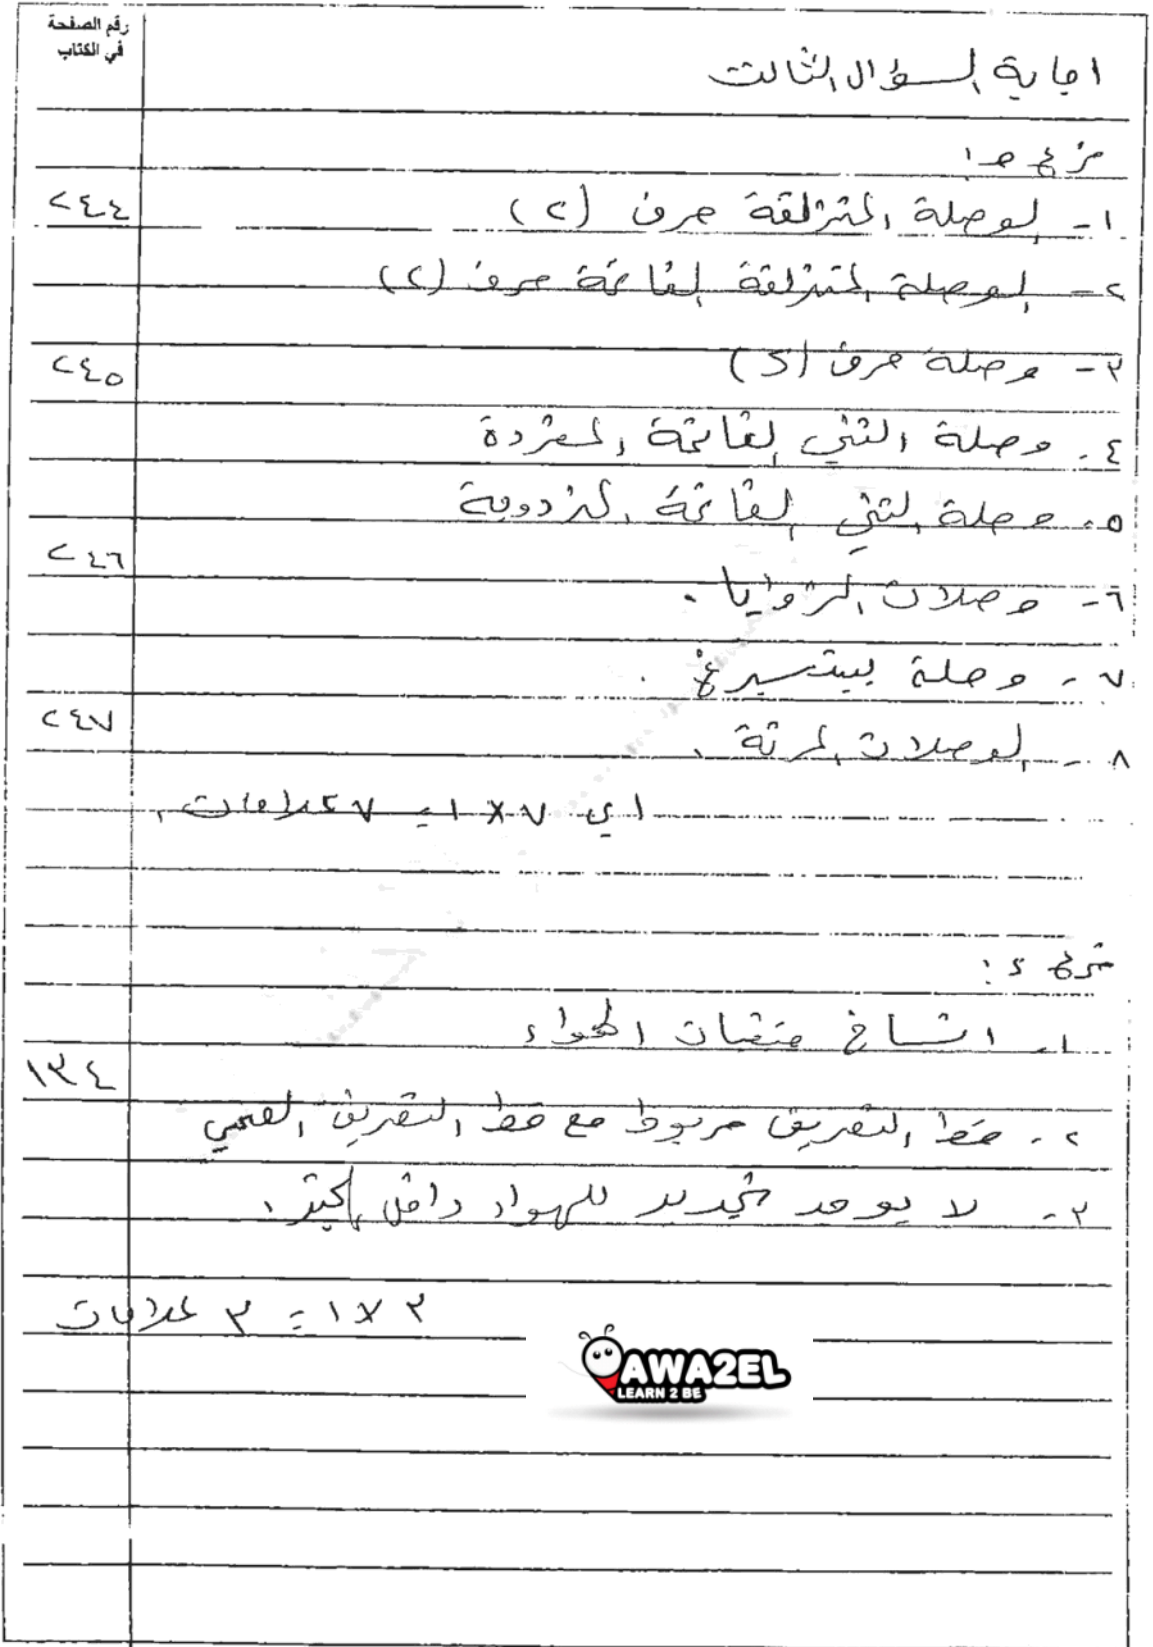 رقم الصفحة
في الكتاب
اجابة السؤال الثالث
فرع ١:
٢٤٤
١- الوصلة المنزلقة حرف (C)
٢- الوصلة المنزلقة القائمة حرف (C)
٢٤٥
٣- وصلة حرف (S)
٤- وصلة الثني القائمة المفردة
٥- وصلة الثني القائمة المزدوجة
٢٤٦
٦- وصلات الزوايا.
٧- وصلة بيتسبرغ.
٢٤٧
٨- الوصلات المرنة.
اي ٧×١ = ٧ علامات.
فرع ٢:
١- اتساخ منقيات الهواء
١٣٤
٢- خط التصريف مربوط مع خط التصريف الصحي
٣- لا يوجد تجديد للهواء داخل الحيز.
٣×١ = ٣ علامات
AWA2EL
LEARN 2 BE